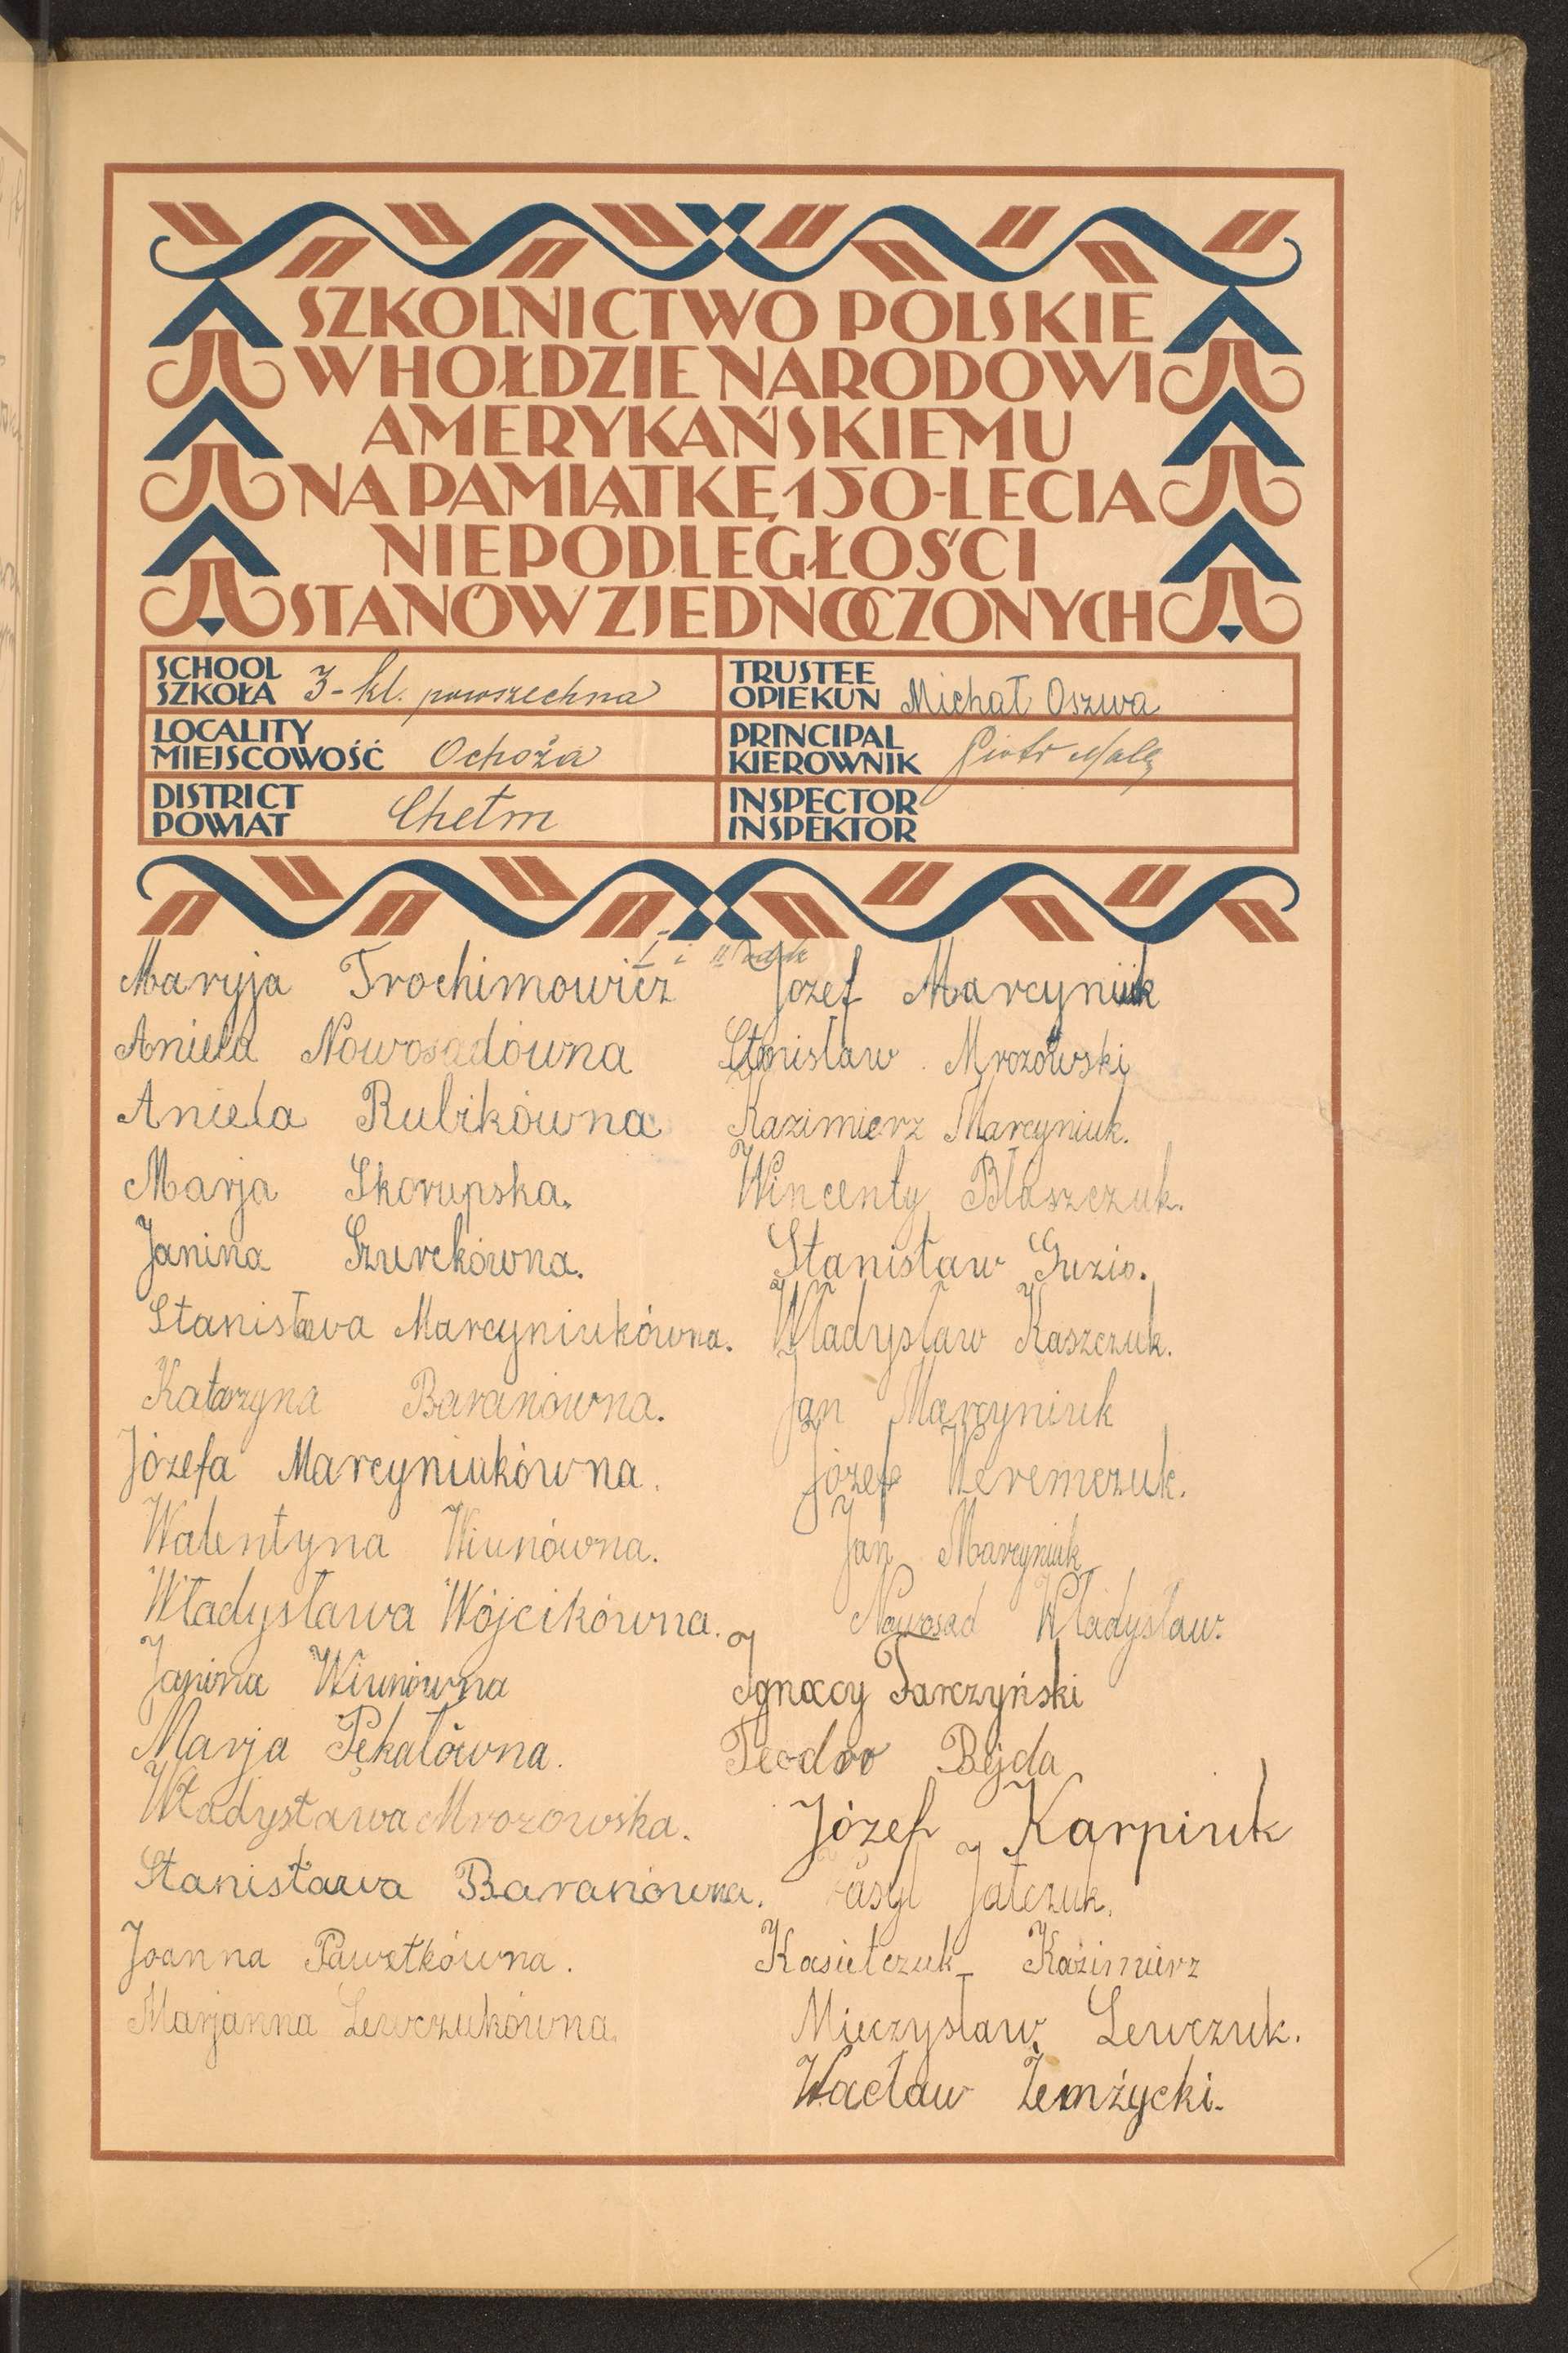 SZKOLNICTWO POLSKIE
W HOŁDZIE NARODOWI
AMERYKAŃSKIEMU
NA PAMIĄTKĘ 150-LECIA
NIEPODLEGŁOŚCI
STANÓW ZJEDNOCZONYCH
SCHOOL
SZKOŁA 3-kl. powszechna
TRUSTEE
OPIEKUN Michał Oszwa
LOCALITY
MIEJSCOWOŚĆ Ochoża
PRINCIPAL
KIEROWNIK Piotr Małę
DISTRICT
POWIAT Chełm
INSPECTOR
INSPEKTOR
I i II
Maryja Trochimowicz
Aniela Nowosadówna
Aniela Rubikówna
Marja Skorupska.
Janina Szurekówna.
Stanisława Marcyniukówna.
Katarzyna Baranówna.
Józefa Marcyniukówna.
Walentyna Wiunówna.
Władysława Wójcikówna.
Janina Wiunówna
Marja Pękalówna.
Władysława Mrozowska.
Stanisława Baranówna.
Joanna Pawełkówna.
Marjanna Lewczukówna.
Józef Marcyniuk
Stanisław Mrozowski
Kazimierz Marcyniuk.
Wincenty Błaszczuk.
Stanisław Guzio.
Władysław Kaszczuk.
Jan Marcyniuk
Józef Weremczuk.
Jan Marcyniuk
Nowosad Władysław.
Ignacy Tarczyński
Teodor Bejda
Józef Karpiuk
Jatczuk.
Kasielczuk Kazimierz
Mieczysław Lewczuk.
Wacław Żemżycki.